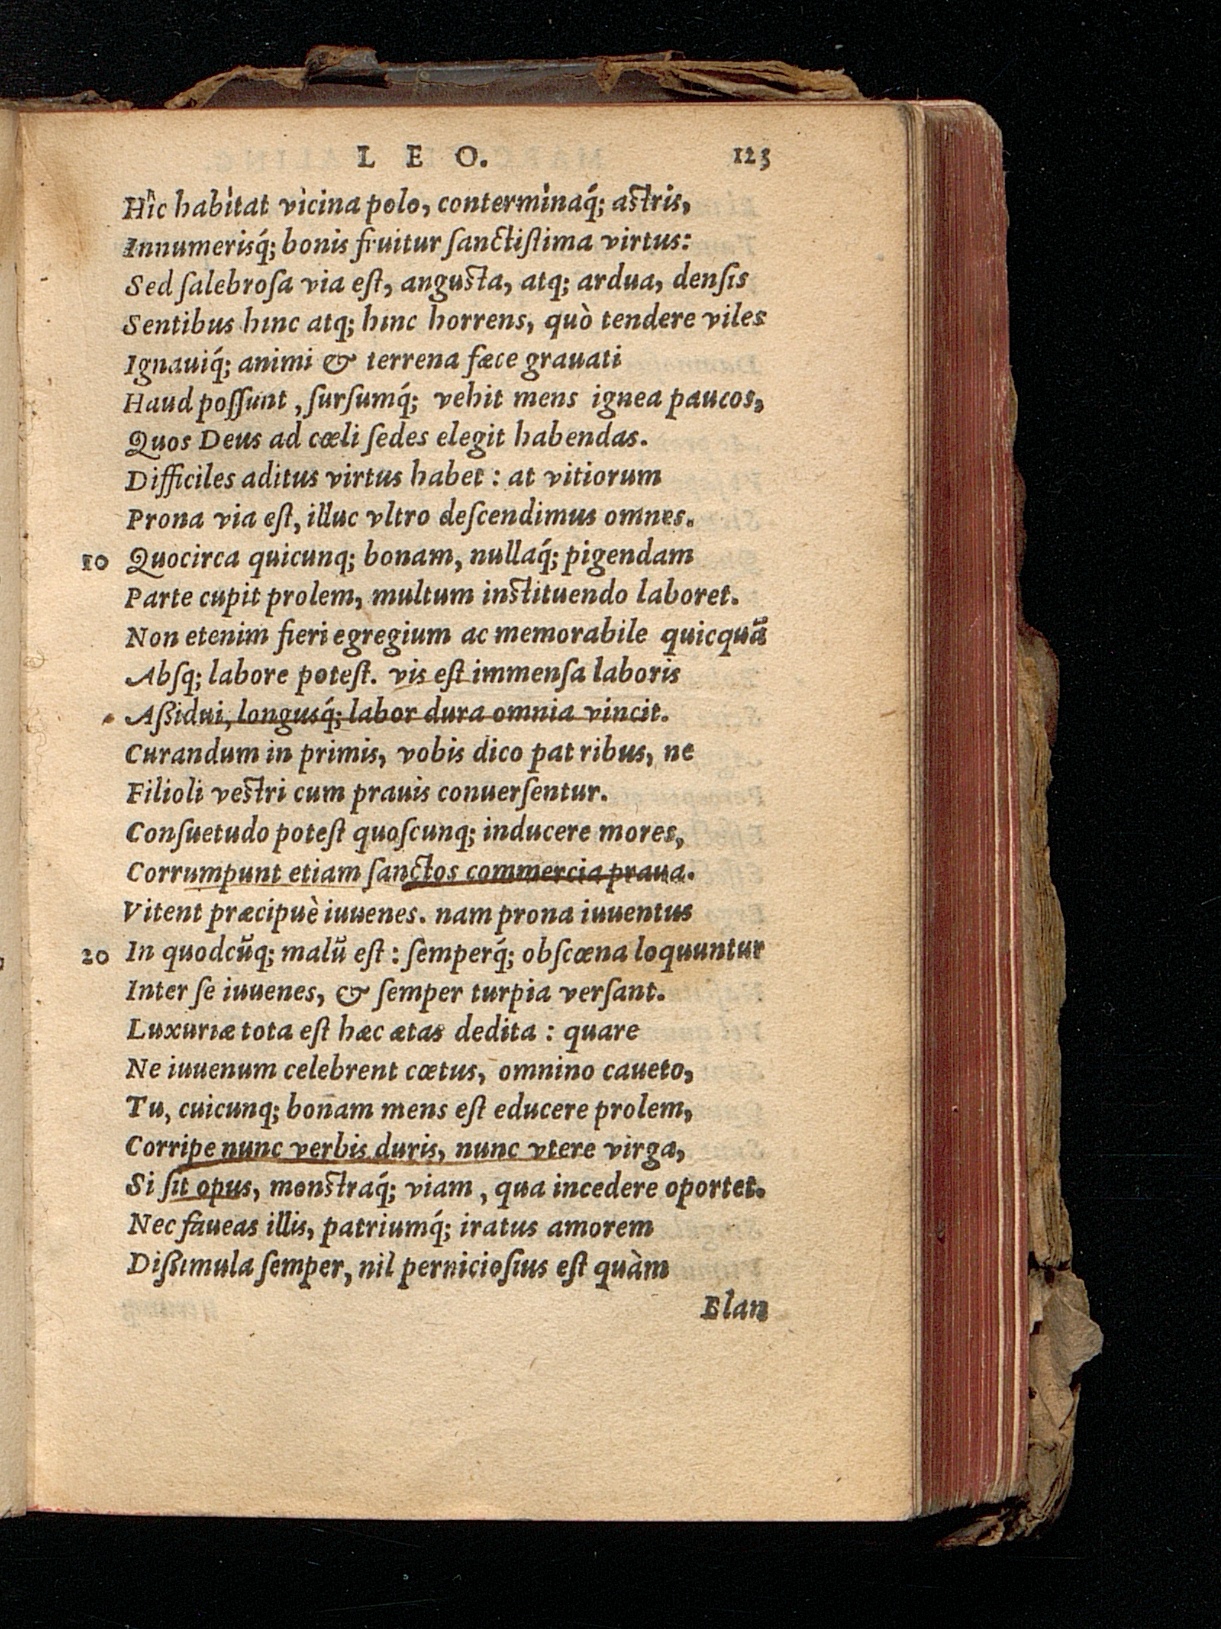 L E O. 123
Hîc habitat vicina polo, conterminaq́; astris,
Innumerisq́; bonis fruitur ſanctiſſima virtus:
Sed ſalebroſa via eſt, angusta, atq; ardua, denſis
Sentibus hinc atq; hinc horrens, quò tendere viles
Ignauiq́; animi & terrena fæce grauati
Haud poſſunt, ſurſumq́; vehit mens ignea paucos,
Quos Deus ad cœli ſedes elegit habendas.
Difficiles aditus virtus habet : at vitiorum
Prona via eſt, illuc vltro deſcendimus omnes.
10 Quocirca quicunq; bonam, nullaq́; pigendam
Parte cupit prolem, multum instituendo laboret.
Non etenim fieri egregium ac memorabile quicquã
Abſq; labore poteſt. vis eſt immenſa laboris
Aßidui, longusq́; labor dura omnia vincit.
Curandum in primis, vobis dico patribus, ne
Filioli vestri cum prauis conuerſentur.
Conſuetudo poteſt quoſcunq; inducere mores,
Corrumpunt etiam ſanctos commercia praua.
Vitent præcipuè iuuenes. nam prona iuuentus
20 In quodcũq; malũ eſt : ſemperq́; obſcœna loquuntur
Inter ſe iuuenes, & ſemper turpia verſant.
Luxuriæ tota eſt hæc ætas dedita : quare
Ne iuuenum celebrent cœtus, omnino caueto,
Tu, cuicunq; bonam mens eſt educere prolem,
Corripe nunc verbis duris, nunc vtere virga,
Si ſit opus, monstraq́; viam, qua incedere oportet.
Nec faueas illis, patriumq́; iratus amorem
Dißimula ſemper, nil pernicioſius eſt quàm
Elan